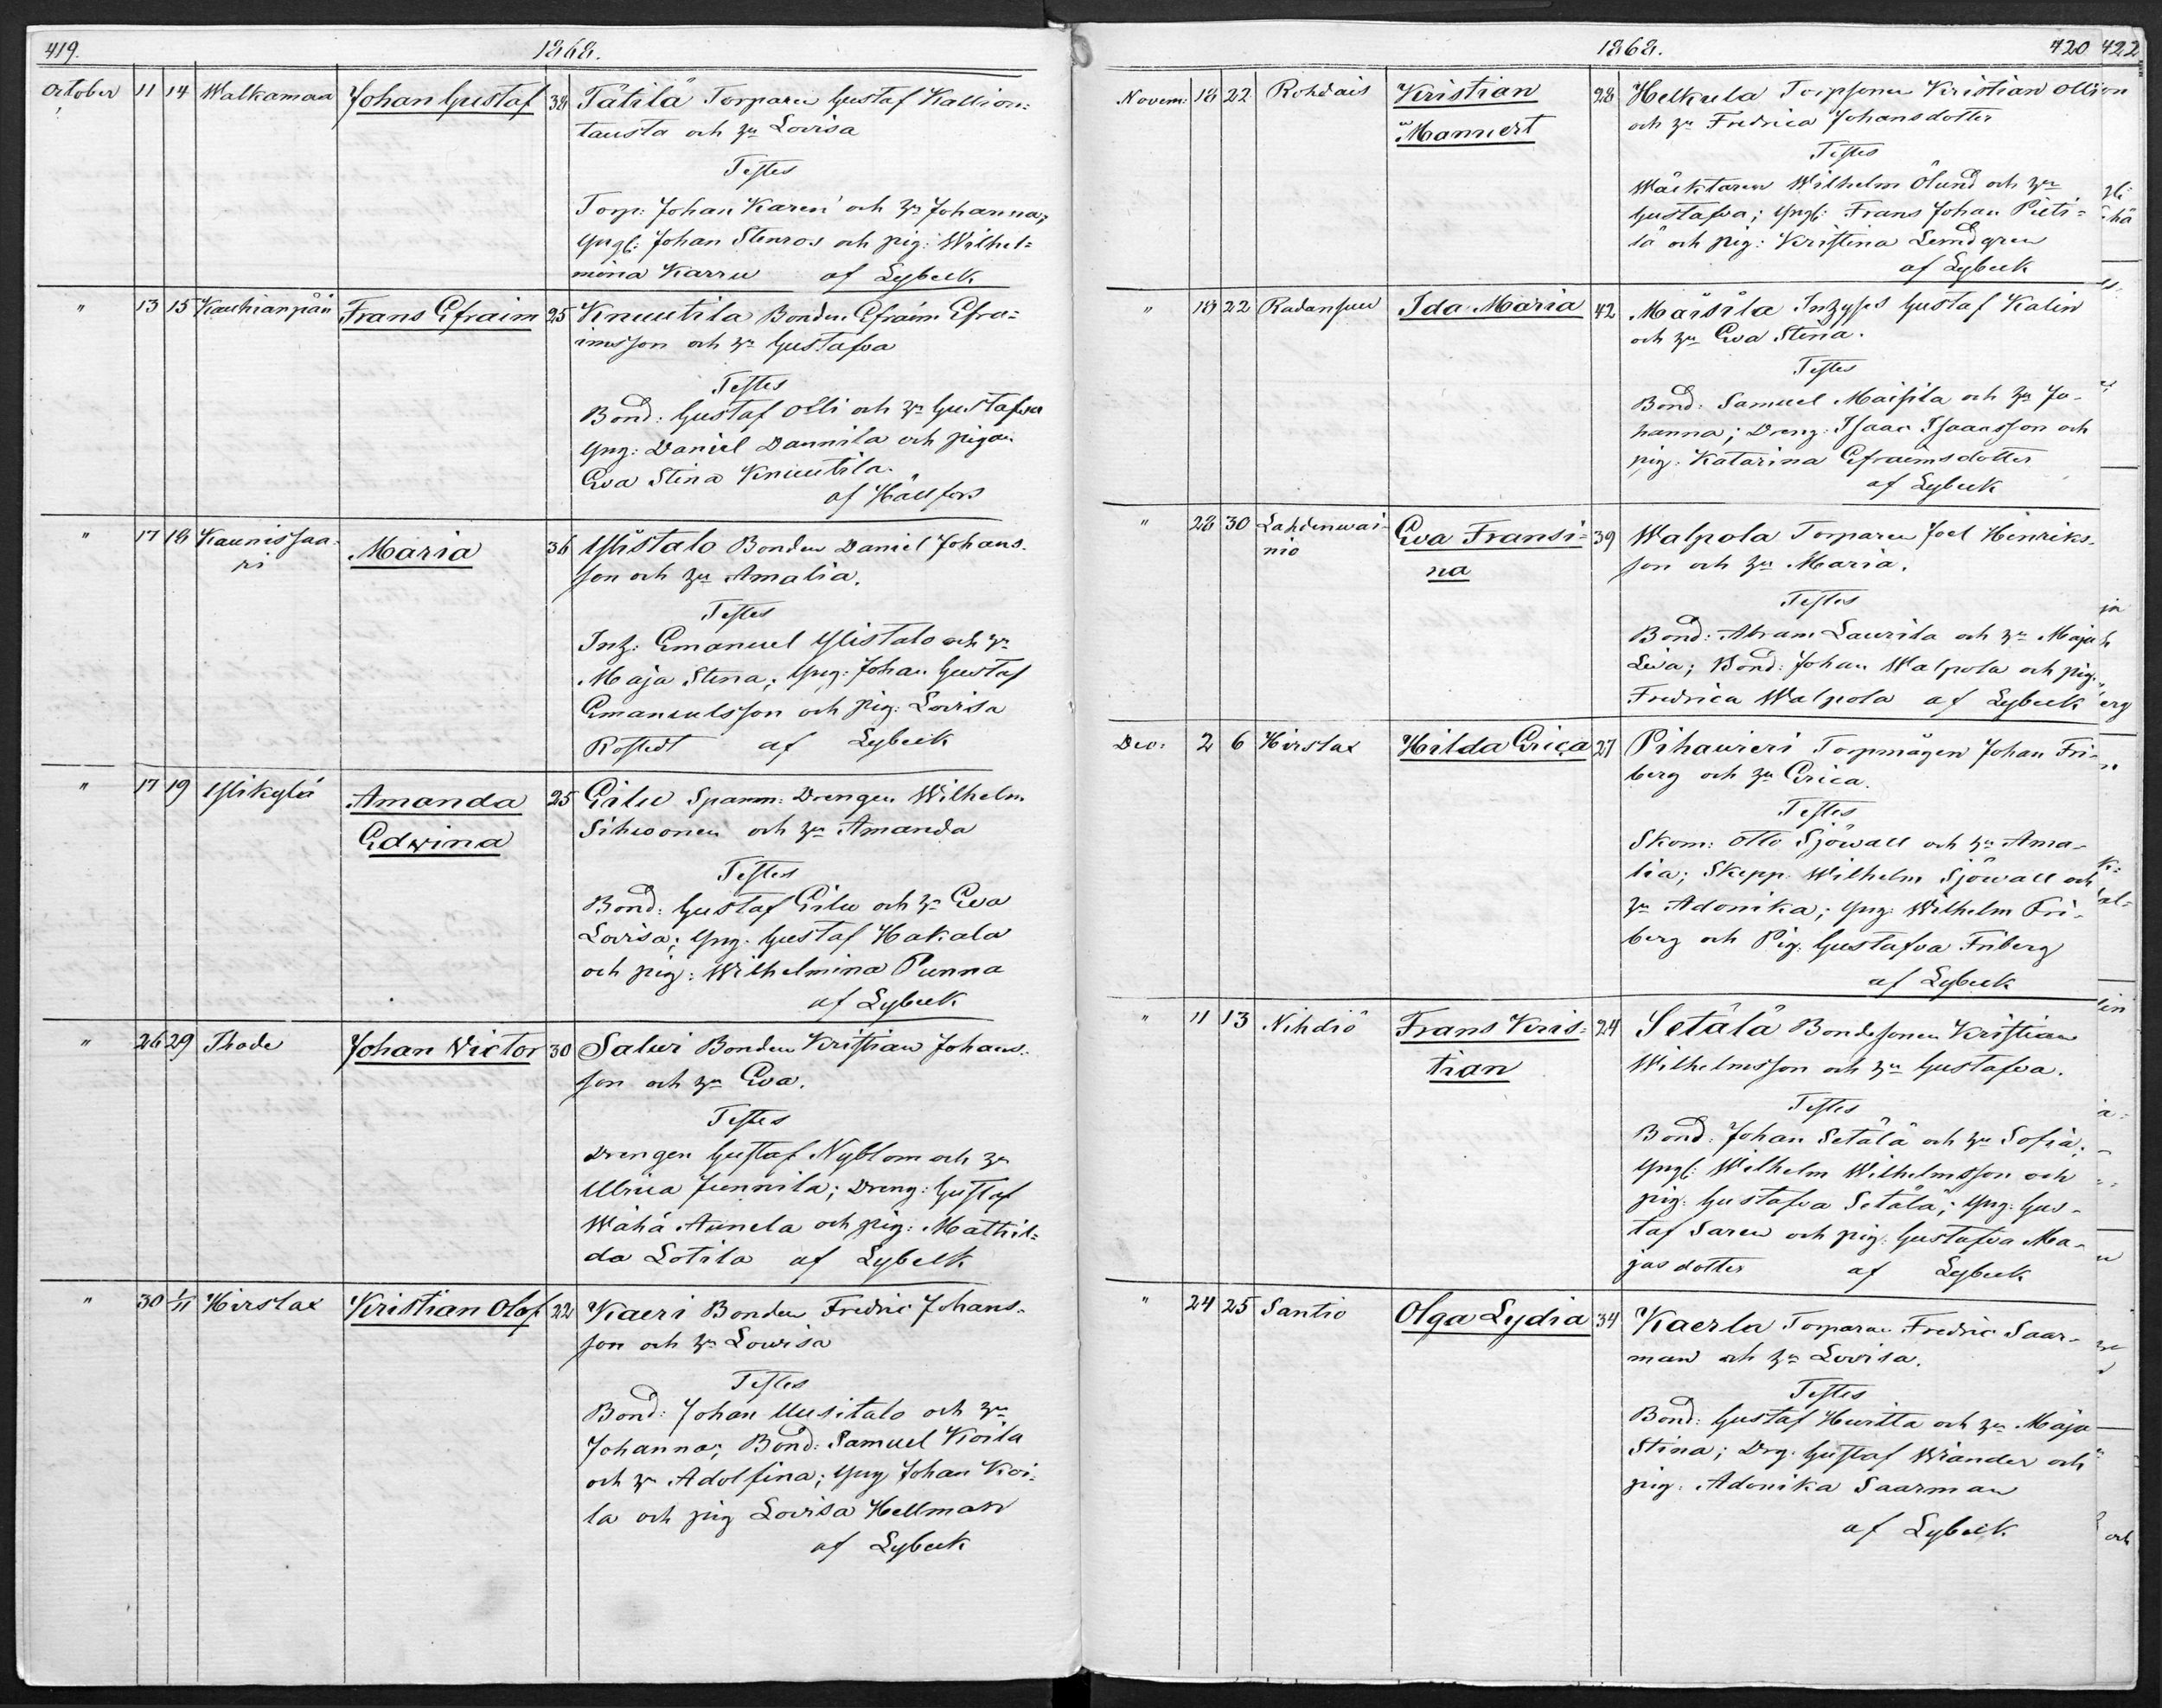 419. 1868.
October 11 14 Walkamaa Johan Gustaf 38 Tätilä Torparen Gustaf Kallion=
tausta och hu Lovisa
Testes
Torp: Johan Karen och hu Johanna;
Yngl: Johan Stenros och pig: Wilhel=
mina Karru af Lybeck
" 13 15 Kauhianpää Frans Efraim 25 Knuutila Bonden Efraim Efra=
imsson och hu Gustafva
Testes
Bond: Gustaf Olli och hu Gustafva
Yng: Daniel Dannila och pigan
Eva Stina Knuutila.
af Hällfors
" 17 18 Kaunissaa-
ri Maria 36 Ylistalo Bonden Daniel Johans-
son och hu Amalia.
Testes
Inh: Emanuel Ylistalo och hu
Maja Stina; Yng: Johan Gustaf
Emanuelsson och pig: Lovisa
Rostedt af Lybeck
" 17 19 Ylikylä Amanda
Edwina 25 Eilu Spanm: Drengen Wilhelm
Sihvonen och hu Amanda
Testes
Bond: Gustaf Eilu och hu Eva
Lovisa; Yng. Gustaf Hakala
och pig: Wilhelmina Punna
af Lybeck
" 26 29 Thode Johan Victor 30 Salvi Bonden Kristian Johans-
son och hu Eva.
Testes
Drengen Gustaf Nyblom och hu
Ulrica Junnila; Dreng: Gustaf
Wähä Aunela och pig: Mathil=
da Lotila af Lybeck
" 30 1/11 Hirslax Kristian Olof 22 Kaeri Bonden Fredric Johans-
son och hu Lowisa
Testes
Bond: Johan Uusitalo och hu
Johanna; Bond: Samuel Koila
och hu Adolfina; Yng Johan Koi-
la och pig Lovisa Hellman
af Lybeck
1868. 420 422
Novem: 18 22 Rohdais Kristian
Mannert 28 Helkula Torpsonen Kristian Ollion
och hu Fredrica Johansdotter
Testes
Wäcktaren Wilhelm Ölund och hu
Gustafva; Yngl: Frans Johan Pieti=
lä och pig: Kristina Lemdgren
af Lybeck
" 18 22 Radansuu Ida Maria 42 Mäisilä Inhyses Gustaf Kalin
och hu Eva Stina.
Testes
Bond: Samuel Maisila och hu Jo-
hanna; Dreng: Isaac Isaacsson och
pig: Katarina Efraimsdotter
af Lybeck
" 28 30 Lahdenwai-
nio Eva Fransi=
na 39 Walpola Torparen Joel Hinriks-
son och hu Maria.
Testes
Bond: Abram Laurila och hu Maja
Lisa; Bond: Johan Walpola och pig.
Fredrica Walpola af Lybeck
Dec: 2 6 Hirslax Hilda Erica 27 Pihavieri Torpmågen Johan Fri-
berg och hu Erica.
Testes
Skom: Otto Sjöwall och hu Ama-
lia; Skepp. Wilhelm Sjöwall och
hu Adonika; Yng: Wilhelm Fri-
berg och Pig: Gustafva Friberg
af Lybeck
" 11 13 Nihdiö Frans Kris=
tian 24 Setälä Bondesonen Kristian
Wilhelmsson och hu Gustafva.
Testes
Bond: Johan Setälä och hu Sofia;
Yngl: Wilhelm Wilhelmsson och
pig: Gustafva Setälä; Yng: Gus-
taf Saren och pig: Gustafva Ma-
jasdotter af Lybeck
" 24 25 Santio Olga Lydia 34 Kaerla Torparen Fredric Saar-
man och hu Lovisa.
Testes
Bond: Gustaf Huitta och hu Maja
Stina; Drg. Gustaf Wiander och
pig. Adonika Saarman
af Lybeck